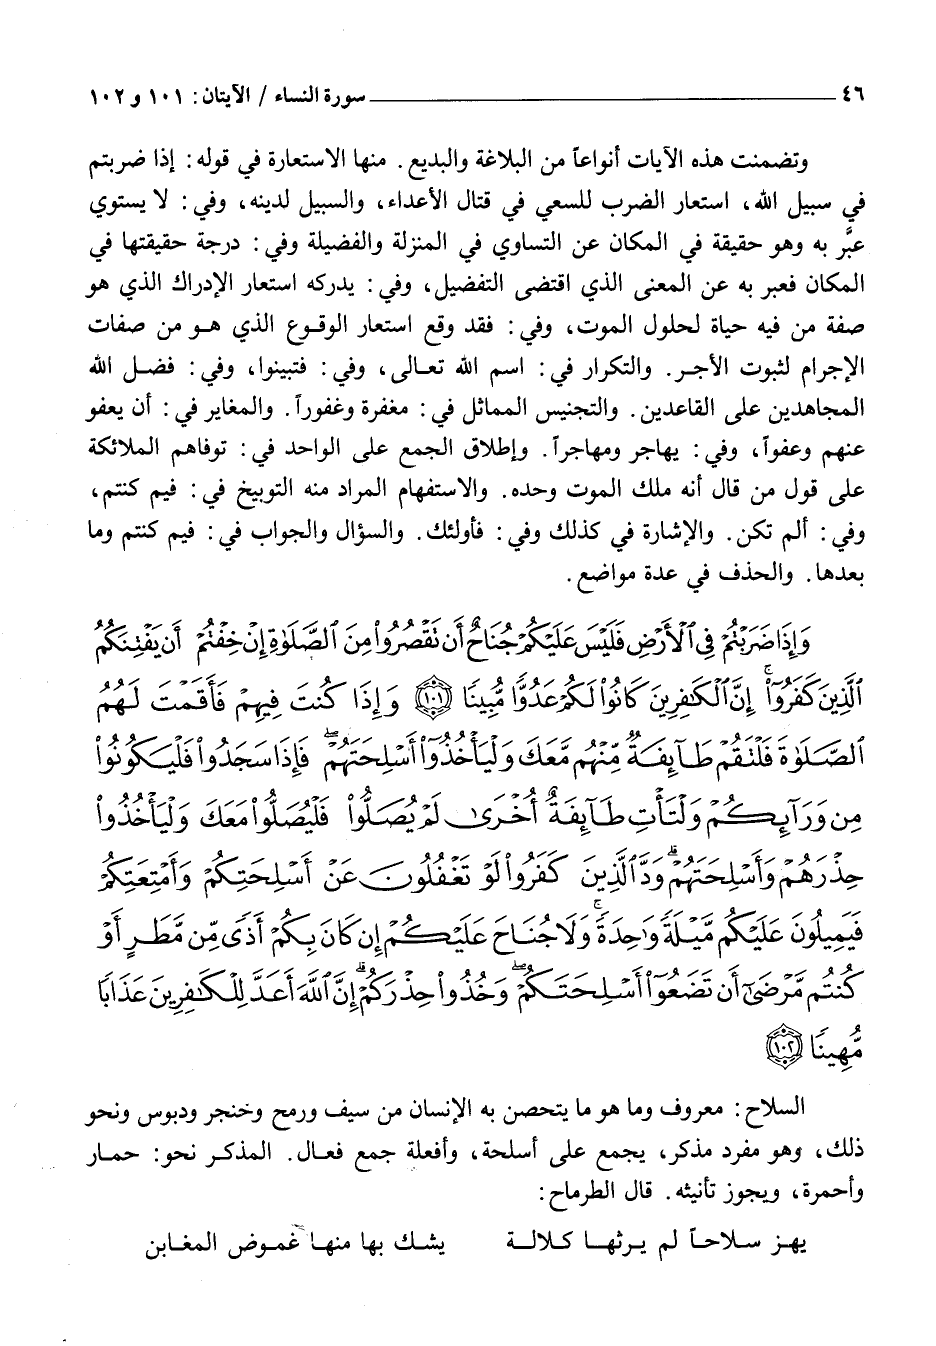 ٤٦ ــــــ سورة النساء / الآيتان: ١٠١ و ١٠٢
وتضمنت هذه الآيات أنواعاً من البلاغة والبديع. منها الاستعارة في قوله: إذا ضربتم
في سبيل الله، استعار الضرب للسعي في قتال الأعداء، والسبيل لدينه، وفي: لا يستوي
عبَّر به وهو حقيقة في المكان عن التساوي في المنزلة والفضيلة وفي: درجة حقيقتها في
المكان فعبر به عن المعنى الذي اقتضى التفضيل، وفي: يدركه استعار الإدراك الذي هو
صفة من فيه حياة لحلول الموت، وفي: فقد وقع استعار الوقوع الذي هو من صفات
الإجرام لثبوت الأجر. والتكرار في: اسم الله تعالى، وفي: فتبينوا، وفي: فضل الله
المجاهدين على القاعدين. والتجنيس المماثل في: مغفرة وغفوراً. والمغاير في: أن يعفو
عنهم وعفواً، وفي: يهاجر ومهاجراً. وإطلاق الجمع على الواحد في: توفاهم الملائكة
على قول من قال أنه ملك الموت وحده. والاستفهام المراد منه التوبيخ في: فيم كنتم،
وفي: ألم تكن. والإشارة في كذلك وفي: فأولئك. والسؤال والجواب في: فيم كنتم وما
بعدها. والحذف في عدة مواضع.
وَإِذَا ضَرَبْتُمْ فِي ٱلْأَرْضِ فَلَيْسَ عَلَيْكُمْ جُنَاحٌ أَن تَقْصُرُوا۟ مِنَ ٱلصَّلَوٰةِ إِنْ خِفْتُمْ أَن يَفْتِنَكُمُ
ٱلَّذِينَ كَفَرُوٓا۟ ۚ إِنَّ ٱلْكَٰفِرِينَ كَانُوا۟ لَكُمْ عَدُوًّا مُّبِينًا ١٠١ وَإِذَا كُنتَ فِيهِمْ فَأَقَمْتَ لَهُمُ
ٱلصَّلَوٰةَ فَلْتَقُمْ طَآئِفَةٌ مِّنْهُم مَّعَكَ وَلْيَأْخُذُوٓا۟ أَسْلِحَتَهُمْ ۖ فَإِذَا سَجَدُوا۟ فَلْيَكُونُوا۟
مِن وَرَآئِكُمْ وَلْتَأْتِ طَآئِفَةٌ أُخْرَىٰ لَمْ يُصَلُّوا۟ فَلْيُصَلُّوا۟ مَعَكَ وَلْيَأْخُذُوا۟
حِذْرَهُمْ وَأَسْلِحَتَهُمْ ۗ وَدَّ ٱلَّذِينَ كَفَرُوا۟ لَوْ تَغْفُلُونَ عَنْ أَسْلِحَتِكُمْ وَأَمْتِعَتِكُمْ
فَيَمِيلُونَ عَلَيْكُم مَّيْلَةً وَٰحِدَةً ۚ وَلَا جُنَاحَ عَلَيْكُمْ إِن كَانَ بِكُمْ أَذًى مِّن مَّطَرٍ أَوْ
كُنتُم مَّرْضَىٰٓ أَن تَضَعُوٓا۟ أَسْلِحَتَكُمْ ۖ وَخُذُوا۟ حِذْرَكُمْ ۗ إِنَّ ٱللَّهَ أَعَدَّ لِلْكَٰفِرِينَ عَذَابًا
مُّهِينًا ١٠٢
السلاح: معروف وما هو ما يتحصن به الإنسان من سيف ورمح وخنجر ودبوس ونحو
ذلك، وهو مفرد مذكر، يجمع على أسلحة، وأفعلة جمع فعال. المذكر نحو: حمار
وأحمرة، ويجوز تأنيثه. قال الطرماح:
يهز سلاحاً لم يرثها كلالة يشك بها منها غموض المغابن